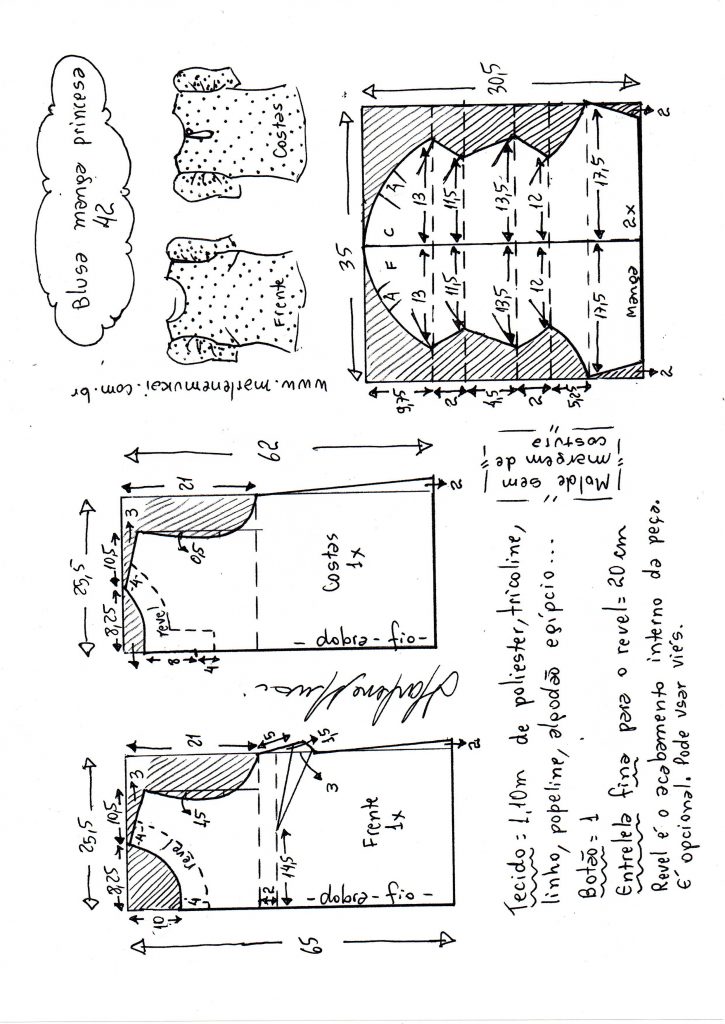 Blusa manga princesa
42
Frente
Costas
www.marlenemukai.com.br
65
25,5
8,25
10,5
3
4
10
21
1,5
revel
4
2
14,5
15
1,5
3
2
Frente
1x
-dobra-fio-
25,5
8,25
10,5
3
4
62
21
0,5
revel
8
4
2
Costas
1x
-dobra-fio-
35
30,5
A F C A
13 13
11,5 11,5
13,5 13,5
12 12
17,5 17,5
9,75
2
4,5
2
5,25
2 2
Manga 2x
Molde sem
margem de
costura
Tecido = 1,10m de poliester, tricoline,
linho, popeline, algodão egípcio...
Botão = 1
Entretela fina para o revel = 20 cm
Revel é o acabamento interno da peça.
É opcional. Pode usar viés.